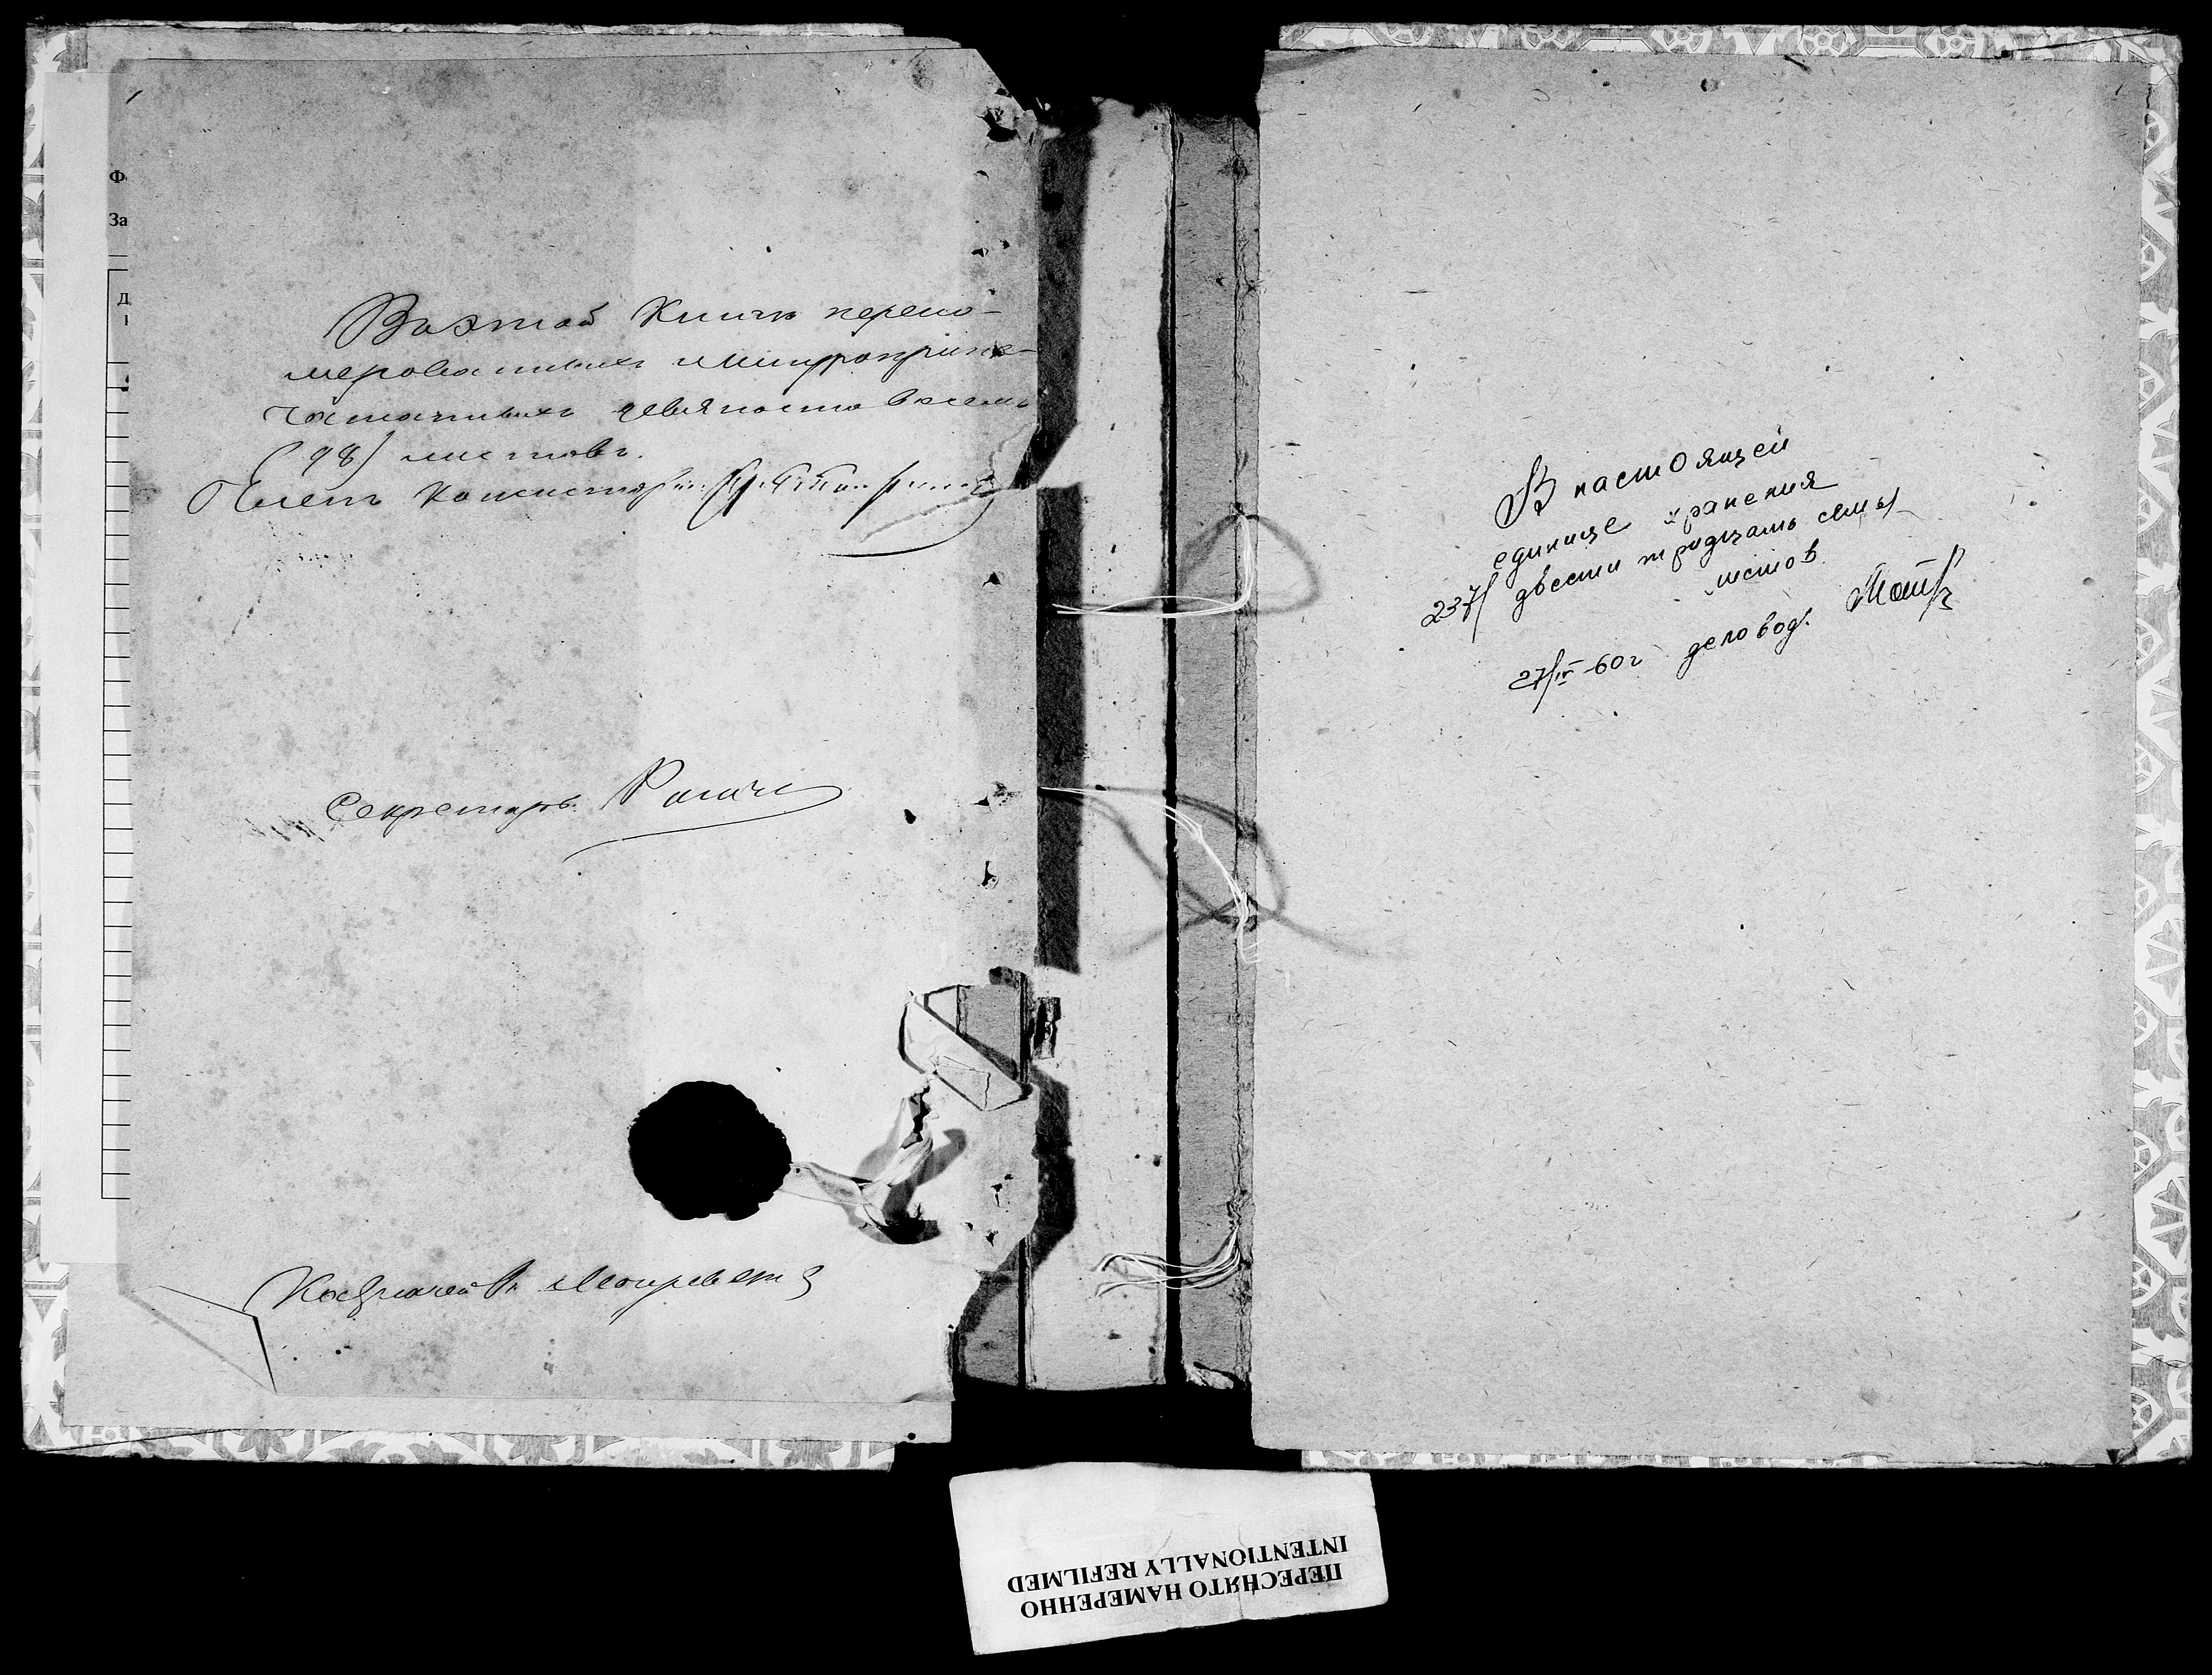 Ф
За
Д
Въ этой Книгѣ перено-
мерованныхъ
девяносто восемь
(98) листовъ.
Членъ Консисторіи
Секретарь
Казначей
В настоящей
единице хранения
237/ двести тридцать семь
листов
27/IV-60г деловод.
ПЕРЕСНЯТО НАМЕРЕННО
INTENTIONALLY REFILMED